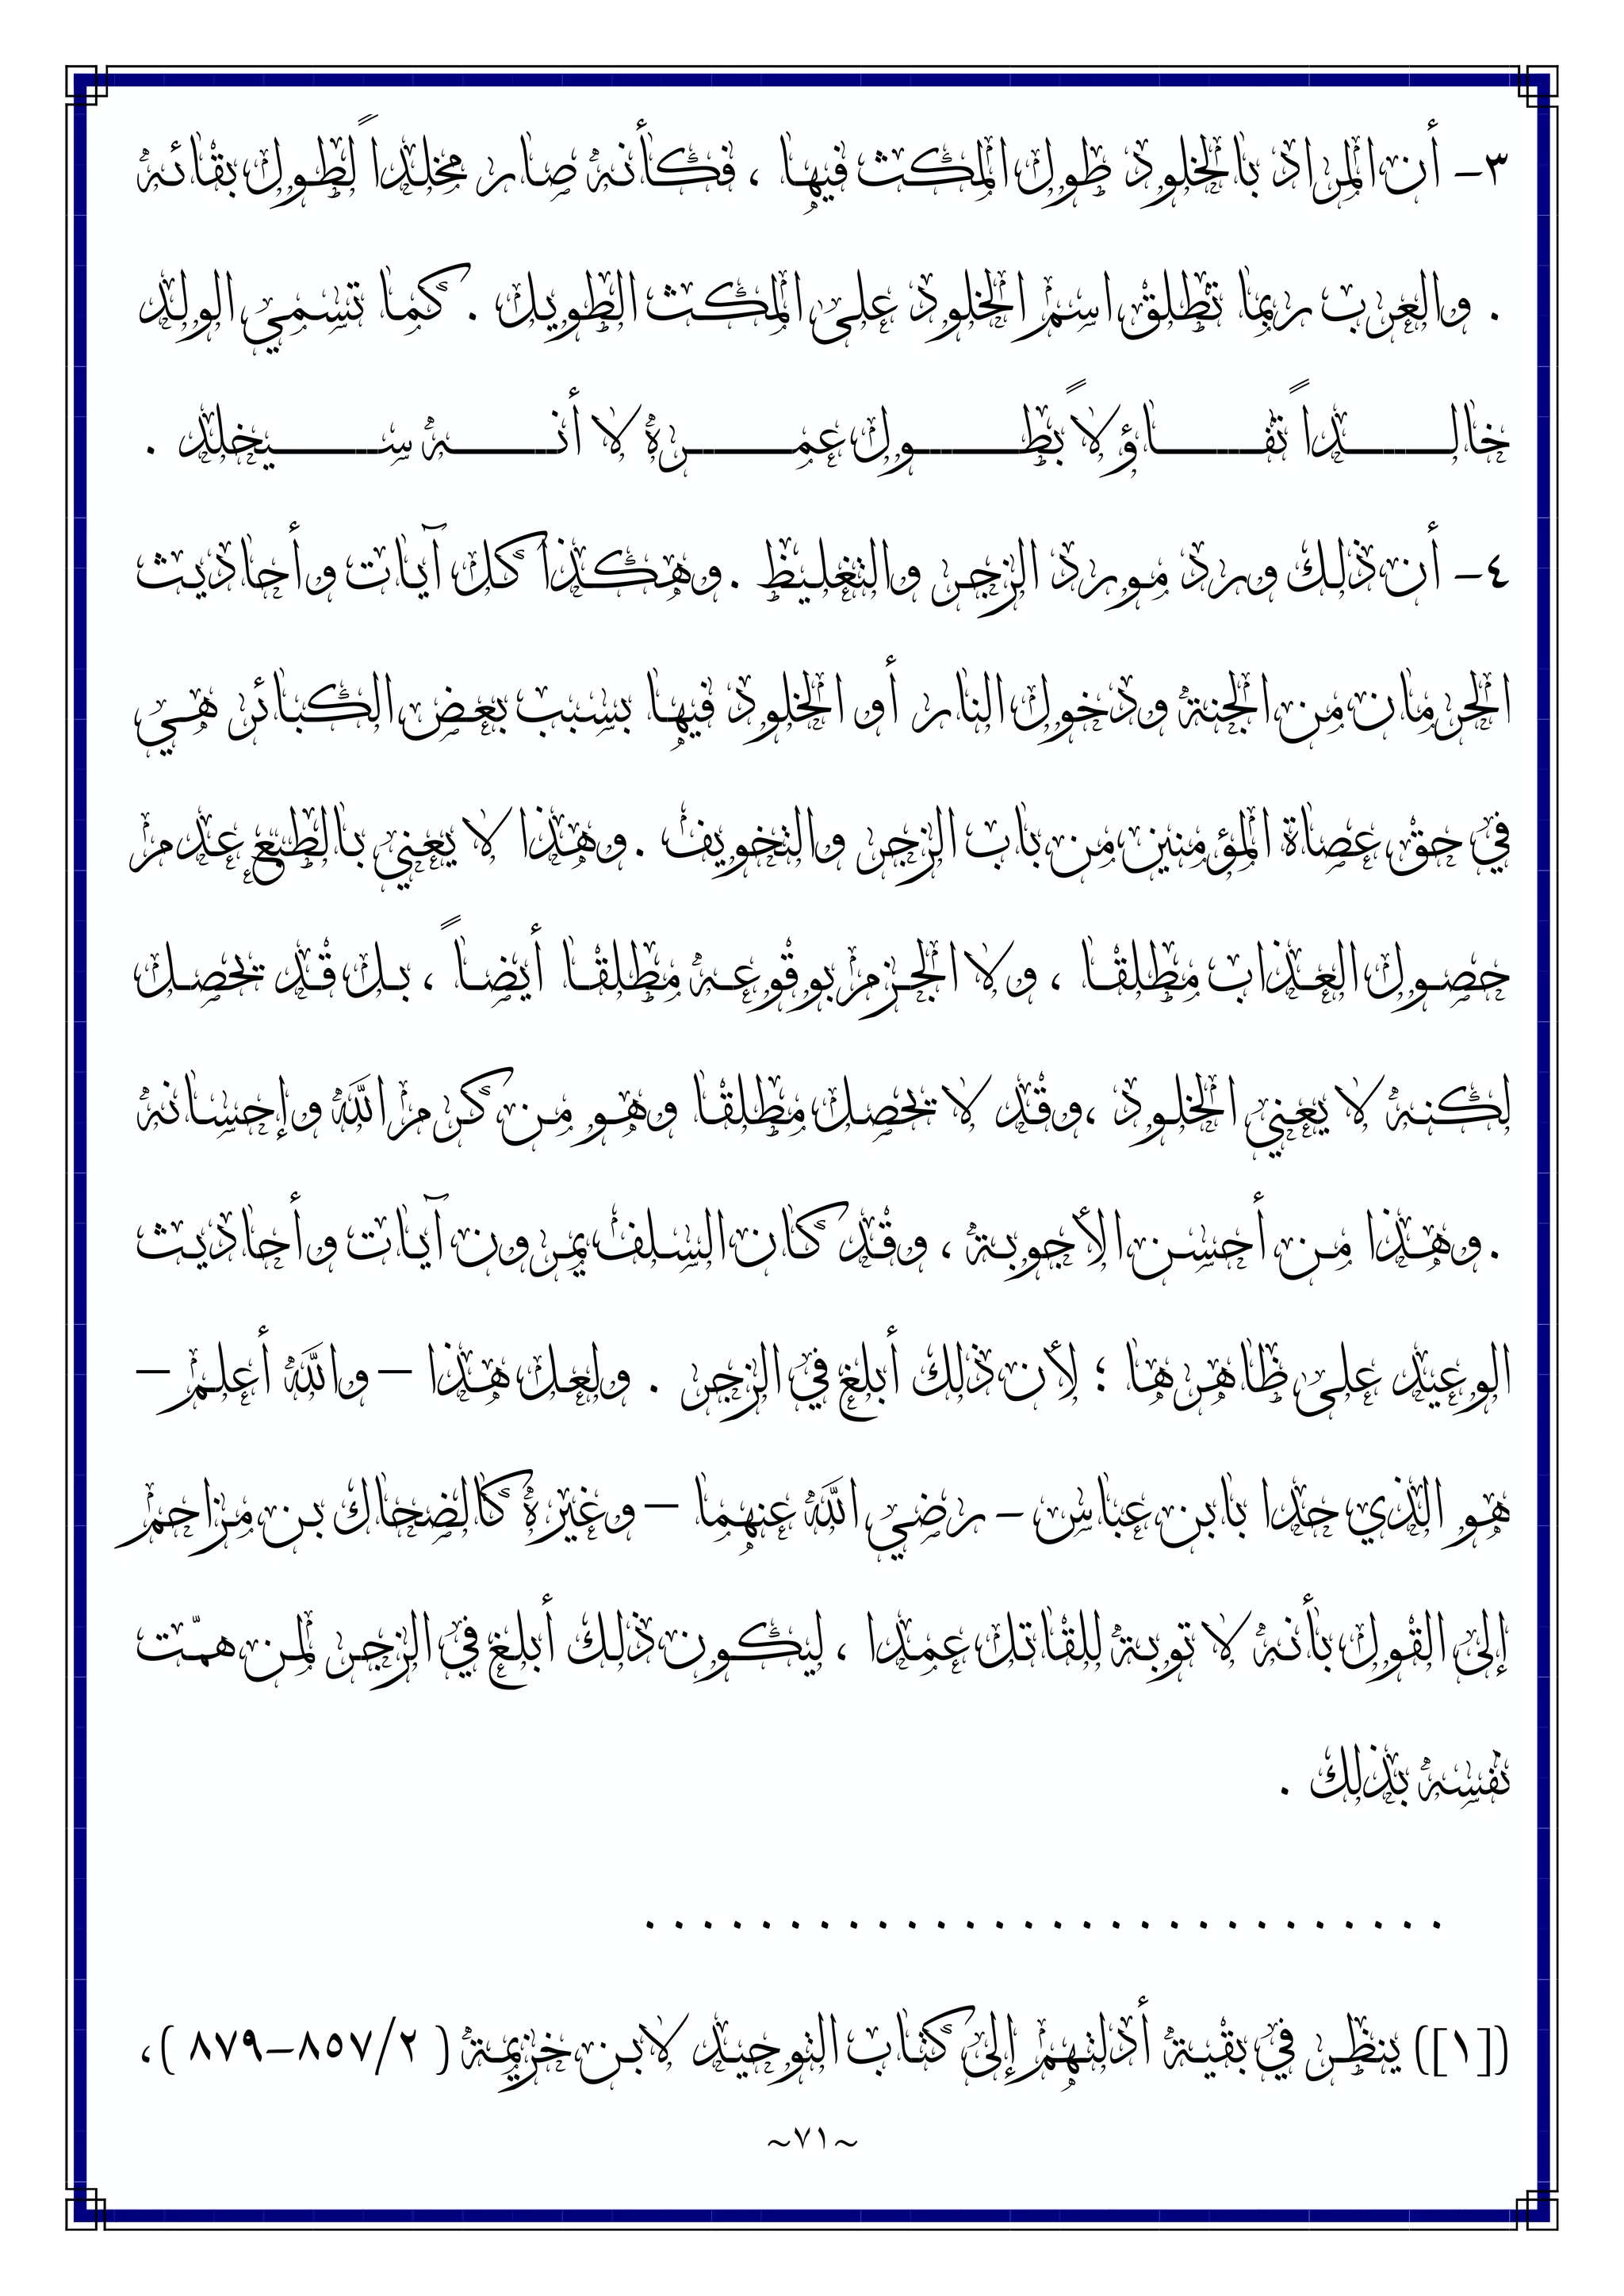 ٣- أن المراد بالخلود طول المكث فيها ، فكأنه صار مخلداً لطول بقائه
. والعرب ربما تطلق اسم الخلود على المكث الطويل . كما تسمي الولد
خالداً تفاؤلاً بطول عمره لا أنه سيخلد .
٤- أن ذلك ورد مورد الزجر والتغليظ . وهكذا كل آيات وأحاديث
الحرمان من الجنة ودخول النار أو الخلود فيها بسبب بعض الكبائر هي
في حق عصاة المؤمنين من باب الزجر والتخويف . وهذا لا يعني بالطبع عدم
حصول العذاب مطلقا ، ولا الجزم بوقوعه مطلقا أيضاً ، بل قد تحصل
لكنه لا يعني الخلود ،وقد لا تحصل مطلقا وهو من كرم الله وإحسانه
. وهذا من أحسن الأجوبة ، وقد كان السلف يمرون آيات وأحاديث
الوعيد على ظاهرها ؛ لأن ذلك أبلغ في الزجر . ولعل هذا – والله أعلم –
هو الذي حدا بابن عباس - رضي الله عنهما – وغيره كالضحاك بن مزاحم
إلى القول بأنه لا توبة للقاتل عمدا ، ليكون ذلك أبلغ في الزجر لمن همّت
نفسه بذلك .
. . . . . . . . . . . . . . . . . . . . . . . . . . . .
([١]) ينظر في بقية أدلتهم إلى كتاب التوحيد لابن خزيمة ( ٢/٨٥٧-٨٧٩ ) ،
~٧١~